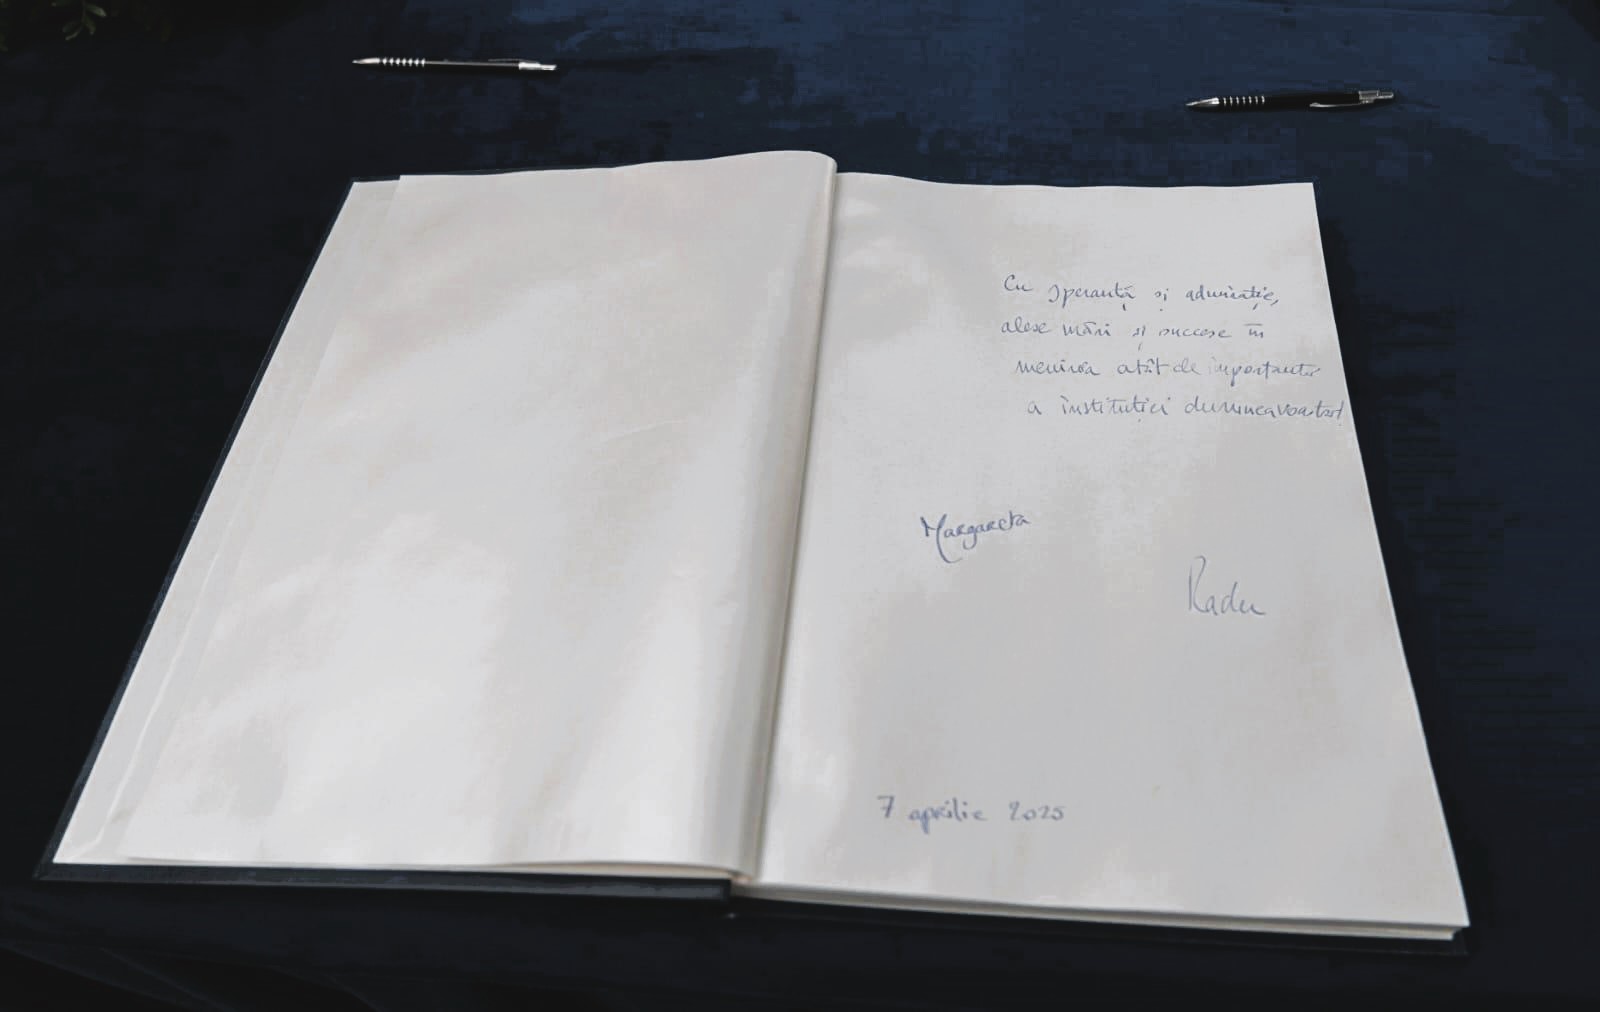 Cu speranță și admirație,
alese urări și succese în
menirea atât de importantă
a instituției dumneavoastră!
Margareta
Radu
7 aprilie 2025